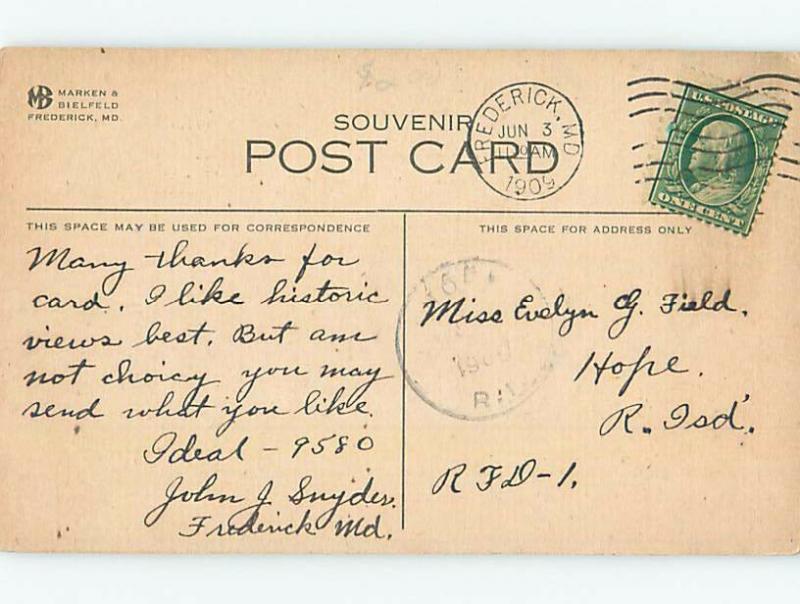 MB MARKEN &
BIELFELD
FREDERICK, MD.
SOUVENIR
POST CARD
FREDERICK, MD
JUN 3
AM
1909
U.S. POSTAGE
ONE CENT
THIS SPACE MAY BE USED FOR CORRESPONDENCE
Many thanks for
card. I like historic
views best. But am
not choicy you may
send what you like.
Ideal - 9580
John J. Snyder.
Frederick Md.
THIS SPACE FOR ADDRESS ONLY
R.I.
Miss Evelyn G. Field.
Hope.
R. Isd'.
RFD-1.